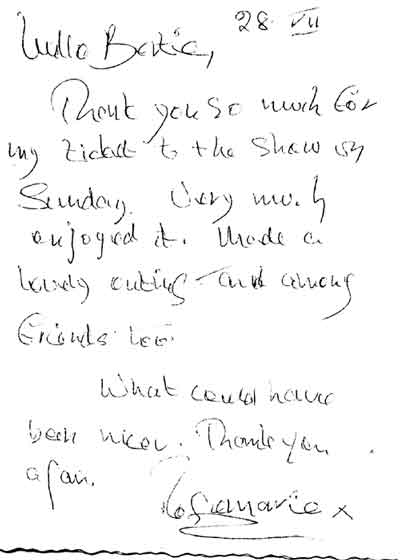 28 VII
Hullo Bertie,
Thank you so much for
my ticket to the Show on
Sunday. Very much
enjoyed it. Made a
lovely outing - and among
friends too.
What could have
been nicer. Thank you
again.
Rosemarie x